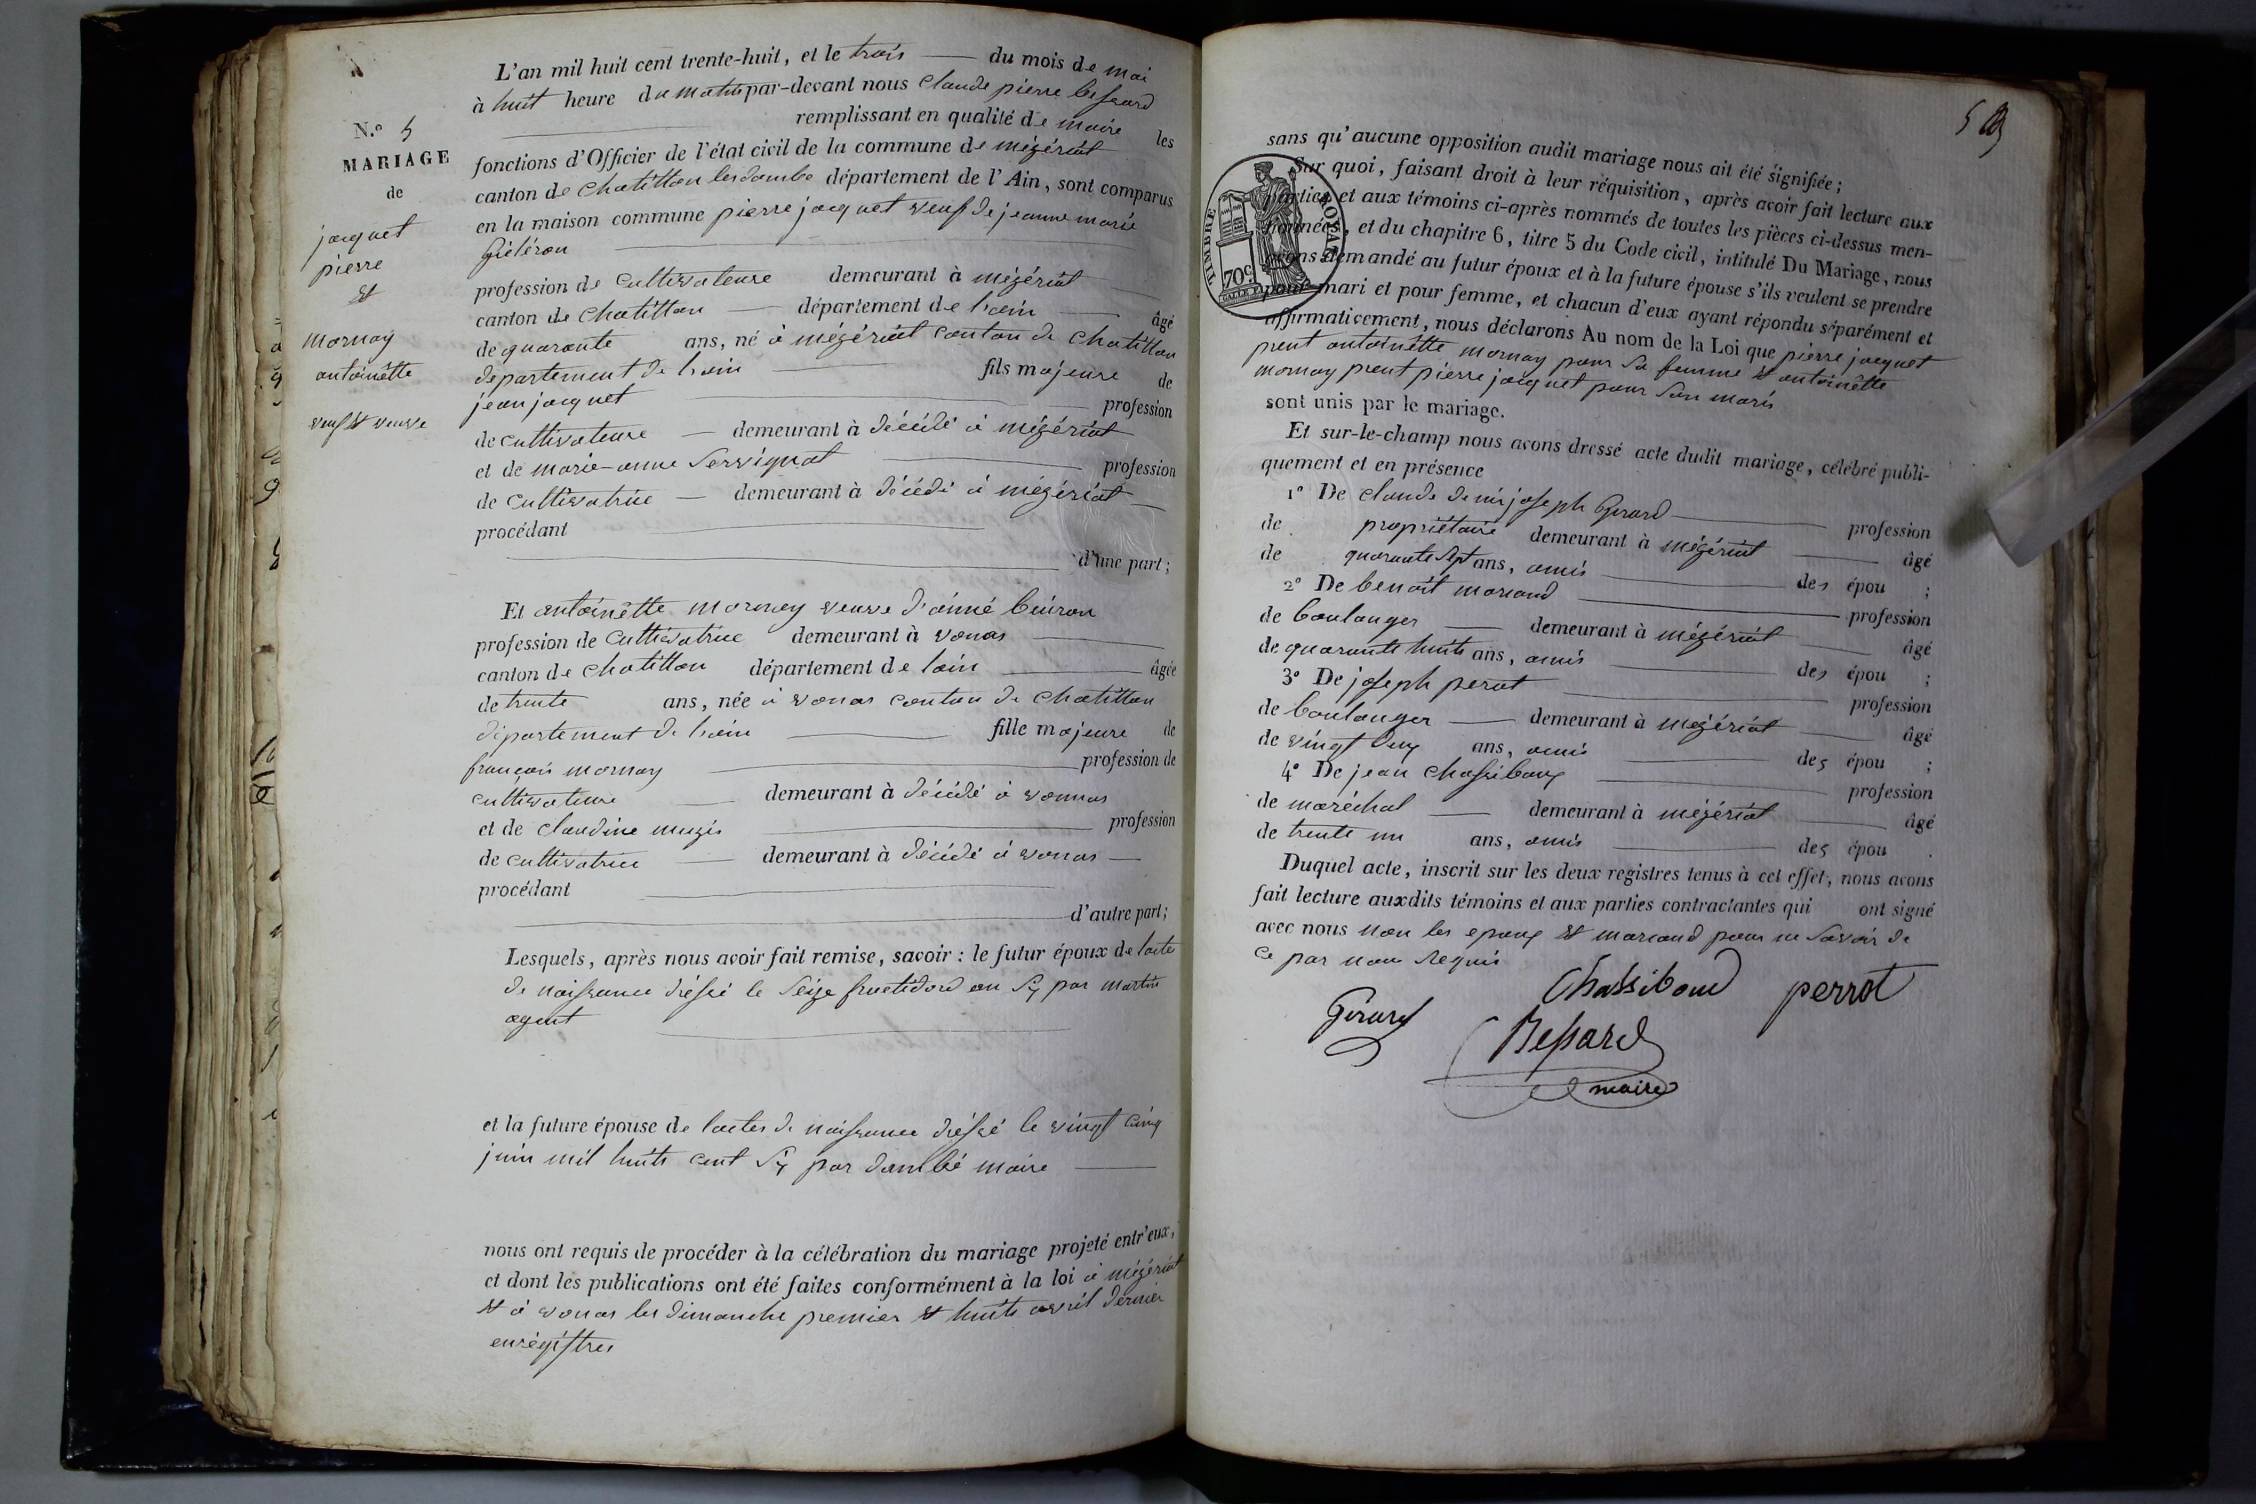 L'an mil huit cent trente-huit, et le trois du mois de mai
à huit heure du matin par-devant nous claude pierre bessard
remplissant en qualité de maire les
N.º 5
MARIAGE
de
jacquet
pierre
et
mornay
antoinètte
veuf et veuve
fonctions d'Officier de l'état civil de la commune de mézériat
canton de chatillon lesdombe département de l'Ain, sont comparus
en la maison commune pierre jacquet veuf de jeanne marie
profession de cultivateure demeurant à mézériat
canton de chatillon département de l'ain âgé
de quarante ans, né à mézériat canton de chatillon
département de l'ain fils majeure de
jean jacquet profession
de cultivateure demeurant à décédé à mézériat
et de marie-anne servignat profession
de cultivatrice demeurant à décédé à mézériat
procédant
d'une part;
Et antoinètte mornay veuve d'aimé
profession de cultivatrice demeurant à vonas
canton de chatillon département de lain âgée
de trente ans, née à vonas canton de chatillon
département de l'ain fille majeure de
françois mornay profession de
cultivateure demeurant à décédé à vonnas
et de claudine profession
de cultivatrice demeurant à décédé à vonas
procédant
d'autre part;
Lesquels, après nous avoir fait remise, savoir: le futur époux de lacte
de naissance dréssé le seize fructidord an six par martin
agent
et la future épouse de lactes de naissance dréssé le vingt cinq
juin mil huits cent six par dombé maire
nous ont requis de procéder à la célébration du mariage projeté entr'eux,
et dont les publications ont été faites conformément à la loi à mézériat
et à vonas les dimanche premier et huits avril dérnier
enrégistres
5
sans qu'aucune opposition audit mariage nous ait été signifiée;
Sur quoi, faisant droit à leur réquisition, après avoir fait lecture aux
parties et aux témoins ci-après nommés de toutes les pièces ci-dessus men-
tionnées, et du chapitre 6, titre 5 du Code civil, intitulé Du Mariage, nous
avons demandé au futur époux et à la future épouse s'ils veulent se prendre
pour mari et pour femme, et chacun d'eux ayant répondu séparément et
affirmativement, nous déclarons Au nom de la Loi que pierre jacquet
prent antoinètte mornay pour sa femme et antoinètte
mornay prent pierre jacquet pour son maris
sont unis par le mariage.
TIMBRE ROYAL
70 c.
Et sur-le-champ nous avons dressé acte dudit mariage, célébré publi-
quement et en présence
1º De claude denis joseph Girard profession
de propriétaire demeurant à mézériat âgé
de quarante sept ans, amis des épou ;
2º De benoit morand profession
de boulanger demeurant à mézériat âgé
de quarante huits ans, amis des épou ;
3º De joseph perrot profession
de boulanger demeurant à mézériat âgé
de vingt deux ans, amis des épou ;
4º De jean chassiboux profession
de maréchal demeurant à mézériat âgé
de trente un ans, amis des épou .
Duquel acte, inscrit sur les deux registres tenus à cet effet, nous avons
fait lecture auxdits témoins et aux parties contractantes qui ont signé
avec nous non les epoux et morand pour ne savoir de
ce par nous requis
Chassiboud perrot
Girard
Bessard
maire